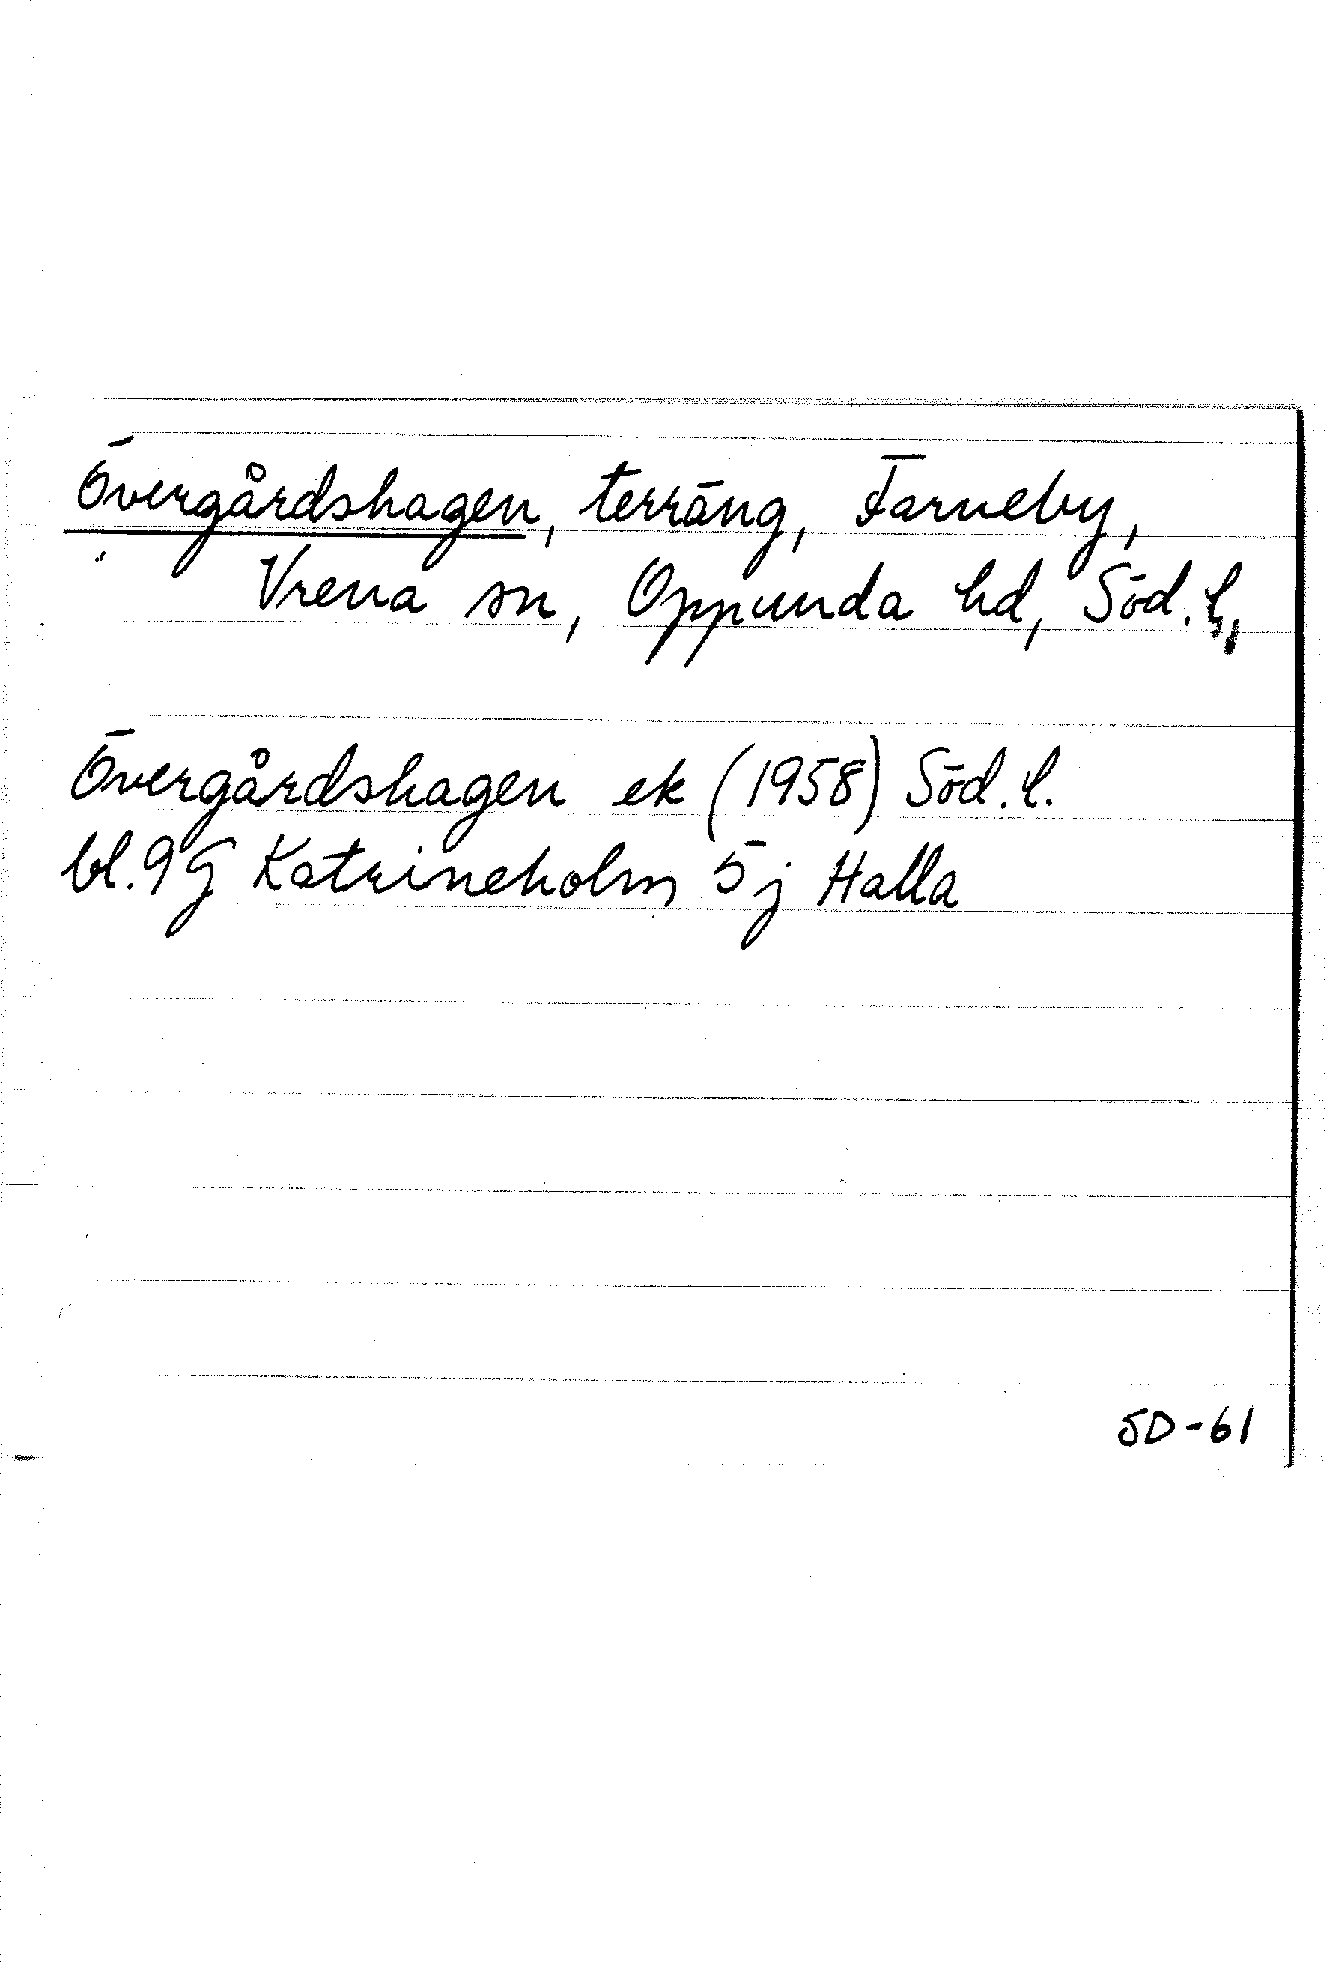 Övergårdshagen, terräng, Farneby,
Vrena sn, Oppunda hd, Söd. l,
Övergårdshagen ek (1958) Söd. l.
bl. 9 G Katrineholm 5 j Halla
SD-61